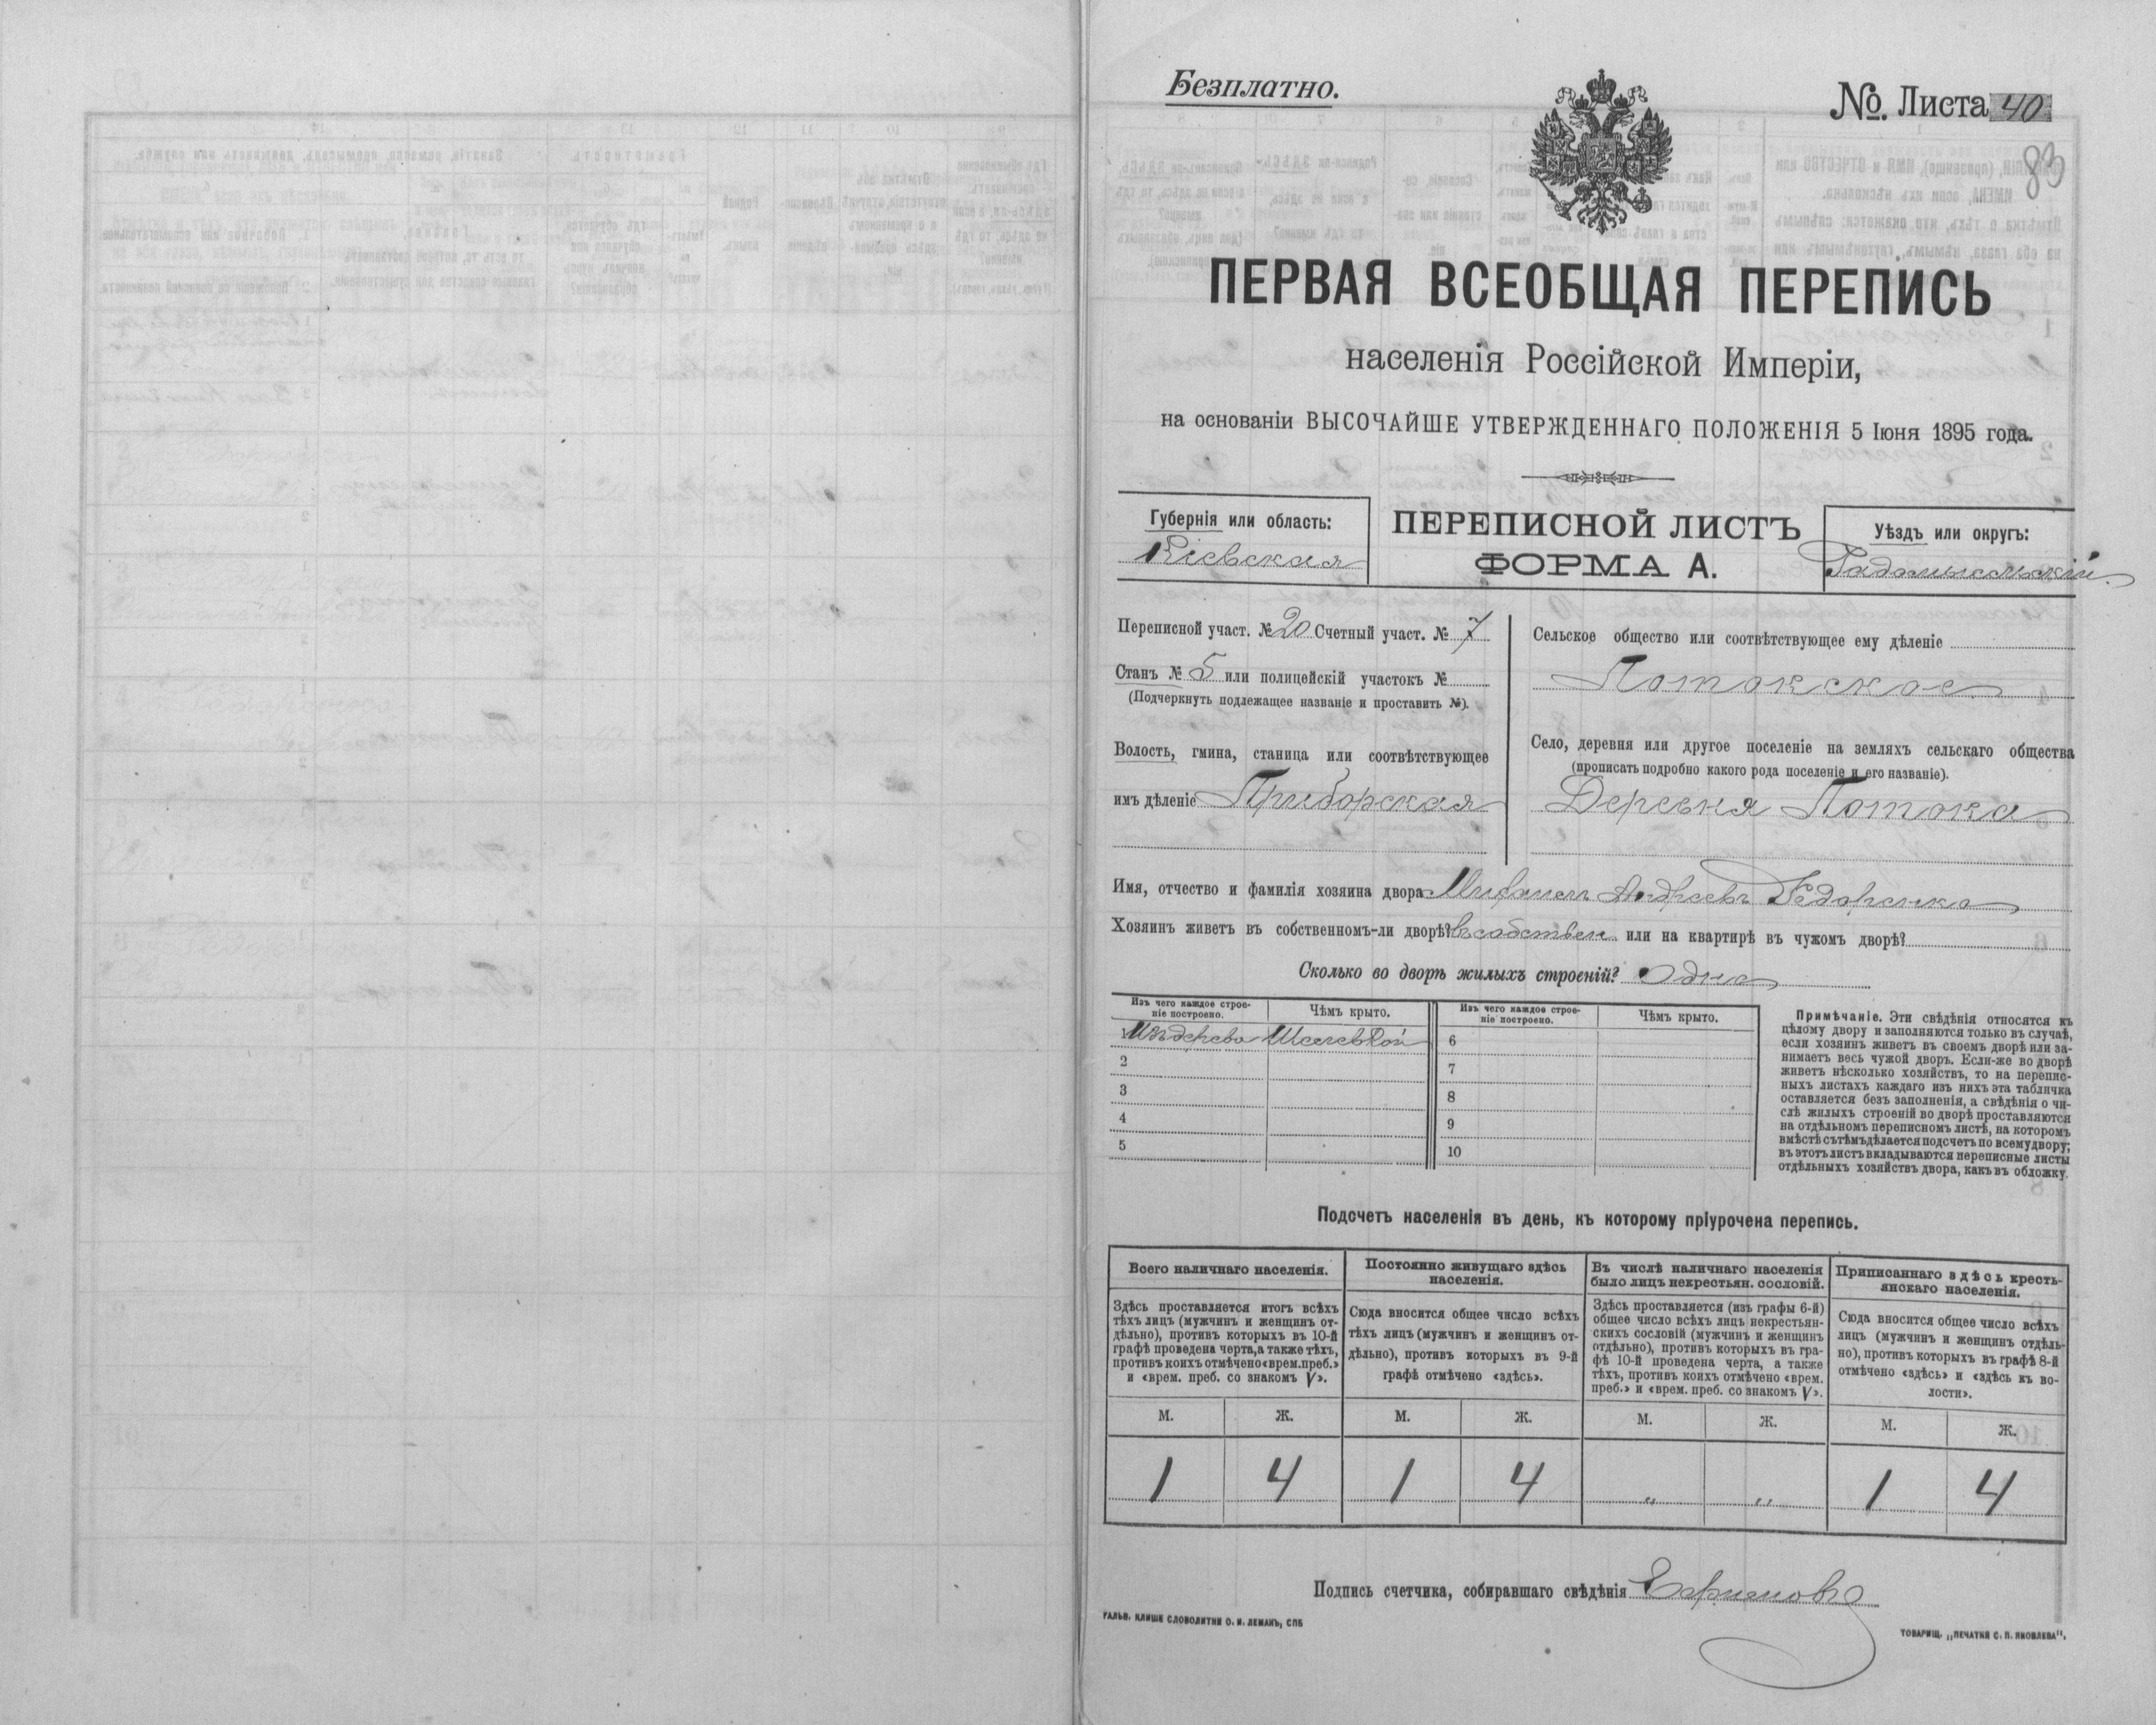 Безплатно.
No. Листа 40
83
ПЕРВАЯ ВСЕОБЩАЯ ПЕРЕПИСЬ
населенія Россійской Имперіи,
на основаніи ВЫСОЧАЙШЕ УТВЕРЖДЕННАГО ПОЛОЖЕНІЯ 5 Іюня 1895 года.
Губернія или область:
Кіевская
ПЕРЕПИСНОЙ ЛИСТЪ
ФОРМА А.
Уѣздъ или округъ:
Радомысльскій
Переписной участ. № 20 Счетный участ. № 7
Станъ № 5 или полицейскій участокъ №
(Подчеркнуть подлежащее названіе и проставить №).
Волость, гмина, станица или соотвѣтствующее
имъ дѣленіе Приборская
Сельское общество или соотвѣтствующее ему дѣленіе
Потокское
Село, деревня или другое поселеніе на земляхъ сельскаго общества
(прописать подробно какого рода поселеніе и его названіе).
Деревня Потока
Имя, отчество и фамилія хозяина двора Михаилъ Андреевъ Федоренко
Хозяинъ живетъ въ собственномъ-ли дворѣ? въ собствен. или на квартирѣ въ чужомъ дворѣ?
Сколько во дворѣ жилыхъ строеній? Одно
Изъ чего каждое строе-
ніе построено.
Чѣмъ крыто.
Изъ чего каждое строе-
ніе построено.
Чѣмъ крыто.
1 Изъ дерева
6
2
7
3
8
4
9
5
10
Примѣчаніе. Эти свѣдѣнія относятся къ
цѣлому двору и заполняются только въ случаѣ,
если хозяинъ живетъ въ своемъ дворѣ или за-
нимаетъ весь чужой дворъ. Если-же во дворѣ
живетъ нѣсколько хозяйствъ, то на перепис-
ныхъ листахъ каждаго изъ нихъ эта табличка
оставляется безъ заполненія, а свѣдѣнія о чи-
слѣ жилыхъ строеній во дворѣ проставляются
на отдѣльномъ переписномъ листѣ, на которомъ
вмѣстѣ съ тѣмъ дѣлается подсчетъ по всему двору;
въ этотъ листъ вкладываются переписные листы
отдѣльныхъ хозяйствъ двора, какъ въ обложку.
Подсчетъ населенія въ день, къ которому пріурочена перепись.
Всего наличнаго населенія.
Здѣсь проставляется итогъ всѣхъ
тѣхъ лицъ (мужчинъ и женщинъ от-
дѣльно), противъ которыхъ въ 10-й
графѣ проведена черта, а также тѣхъ,
противъ коихъ отмѣчено «врем. преб.»
и «врем. преб. со знакомъ V».
М. Ж.
1 4
Постоянно живущаго здѣсь
населенія.
Сюда вносится общее число всѣхъ
тѣхъ лицъ (мужчинъ и женщинъ от-
дѣльно), противъ которыхъ въ 9-й
графѣ отмѣчено «здѣсь».
М. Ж.
1 4
Въ числѣ наличнаго населенія
было лицъ некрестьян. сословій.
Здѣсь проставляется (изъ графы 6-й)
общее число всѣхъ лицъ некрестьян-
скихъ сословій (мужчинъ и женщинъ
отдѣльно), противъ которыхъ въ гра-
фѣ 10-й проведена черта, а также
тѣхъ, противъ коихъ отмѣчено «врем.
преб.» и «врем. преб. со знакомъ V».
М. Ж.
„ „
Приписаннаго здѣсь кресть-
янскаго населенія.
Сюда вносится общее число всѣхъ
лицъ (мужчинъ и женщинъ отдѣль-
но), противъ которыхъ въ графѣ 8-й
отмѣчено «здѣсь» и «здѣсь къ во-
лости».
М. Ж.
1 4
Подпись счетчика, собиравшаго свѣдѣнія Ефимовъ
ГАЛЬВ. КЛИШЕ СЛОВОЛИТНИ О. И. ЛЕМАНЪ, СПБ
ТОВАРИЩ. „ПЕЧАТНЯ С. П. ЯКОВЛЕВА".